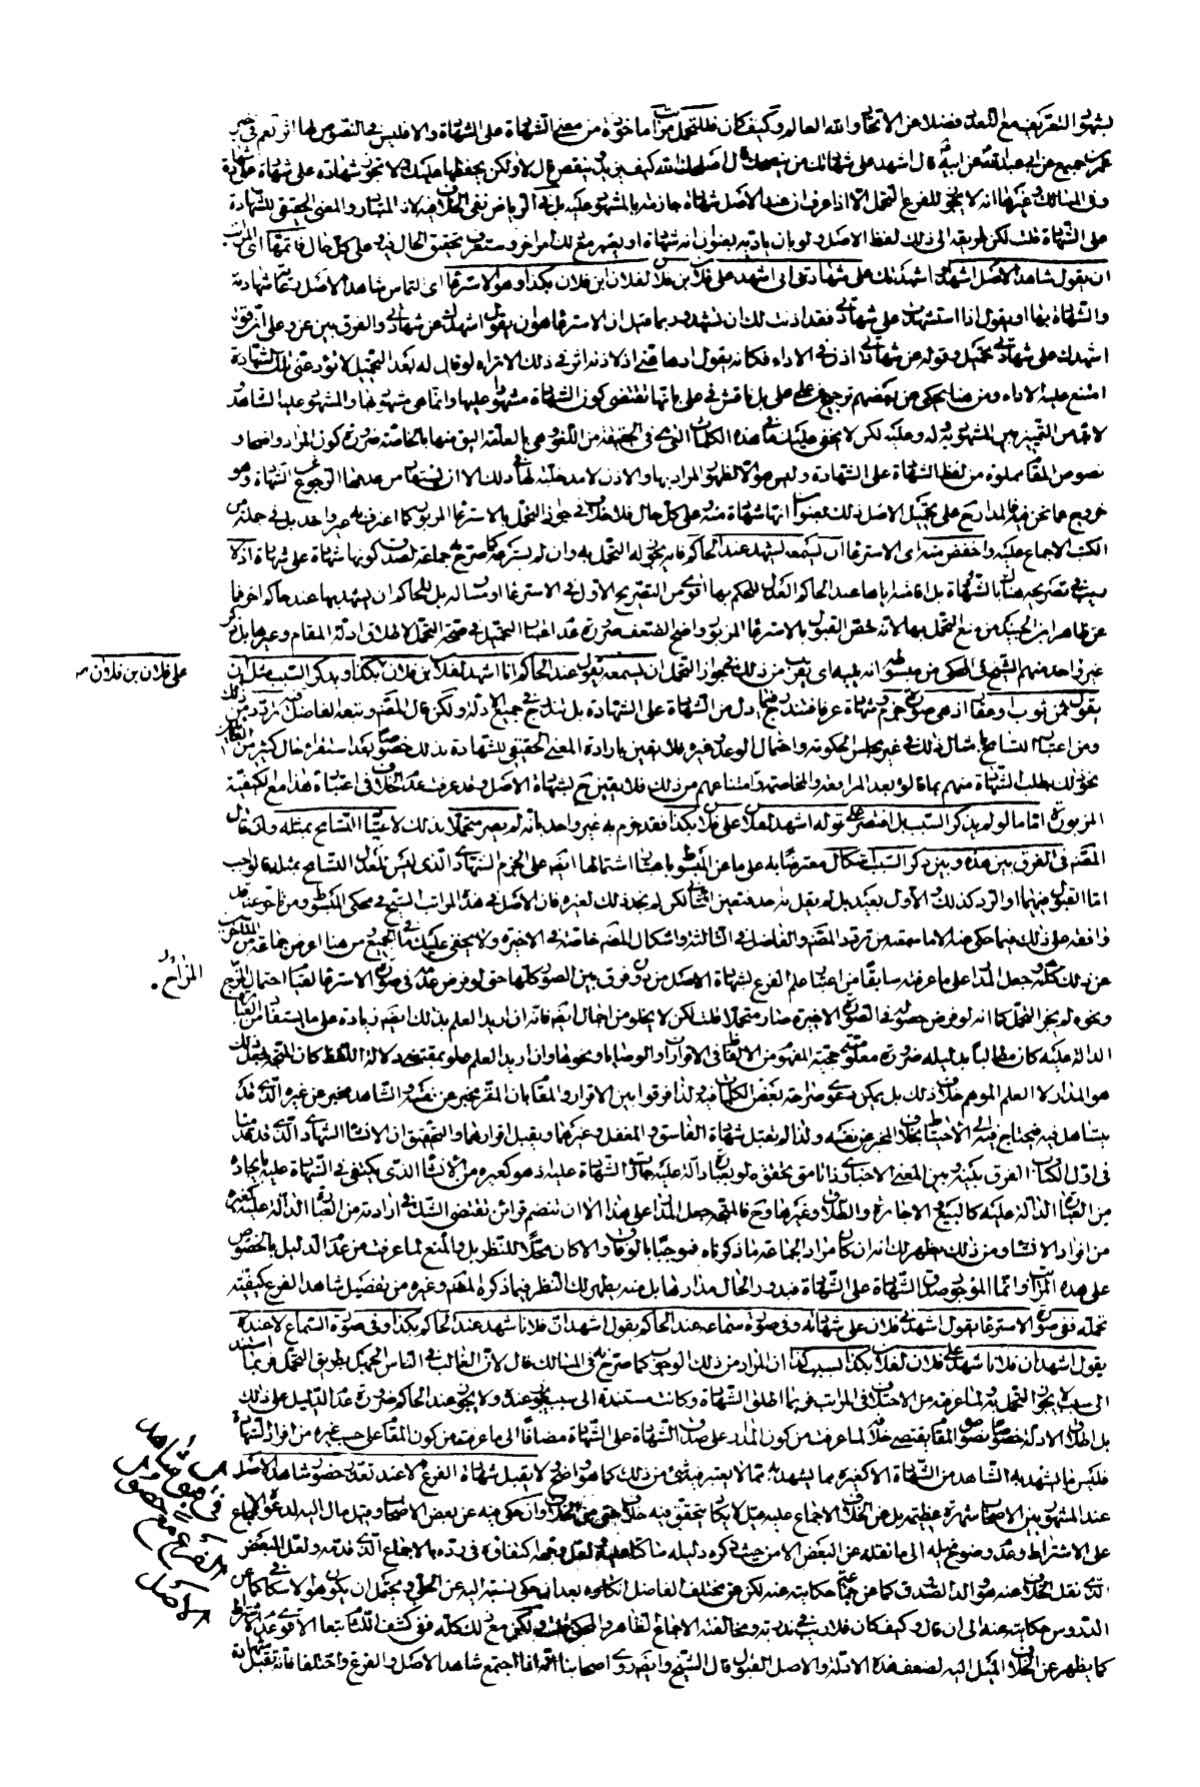 بشهود التعريف مع التعدد فضلا عن الاتحاد والله العالم وكيف كان فللتحمل مراتب اما خوذة من معنى الشهادة على الشهادة والا فليس في النصوص لها اثر نعم في خبر
عمرو بن جميع عن ابي عبد الله عن ابيه قال اشهد على شهادتك من ينصحك قال اصلحك الله كيف يزيد وينقص قال لا ولكن يحفظها عليك ولا تجوز شهادة على شهادة على شهادة
وفي المسالك وغيرها انه لا يجوز للفرع التحمل الا اذا عرف ان عند الاصل شهادة جازمة بالمشهود عليه بل في الرياض نفي الخلاف فيه لانه المتبادر والمعنى الحقيقي للشهادة
على الشهادة قلت لكن لم يعتبر الى ذلك لفظ الاصل ولو بان ياتي به بعنوان انه شهادة او يعتبر مع ذلك امر اخر وستعرف تحقيق الحال فيه وعلى كل حال فاتمها اي المراتب
ان يقول شاهد الاصل اشهد اشهدتك على شهادتي اني اشهد على فلان بن فلان لفلان بن فلان بكذا وهو الاسترعاء اي التماس شاهد الاصل رعاية شهادته
والشهادة بها او يقول اذا استشهدت على شهادتي فقد اذنت لك ان تشهد وربما قيل ان الاسترعاء هو ان يقول اشهدك عن شهادتي والفرق بين عن وعلى ان قوله
اشهدك على شهادتي تحميل وقوله عن شهادتي اذن في الاداء فكانه يقول ادها عني اذ لاذنه اثر في ذلك الا تراه لو قال له بعد التحميل لا تؤد عني تلك الشهادة
امتنع عليه الاداء ومن هنا يحكى عن بعضهم ترجيح عن على على بل ناقش في على بانها تقتضي كون الشهادة مشهودا عليها وانما هي مشهود بها والمشهود عليه الشاهد
لا بد من التمييز بين المشهود به وله وعليه لكن لا يخفى عليك ما في هذه الكلمات التي هي في الحقيقة من اللغو وهي بالعامة اليق منها بالخاصة ضرورة كون المراد واضحا و
نصوص المقام مملوة من لفظ الشهادة على الشهادة وليس هو الا لظهور المراد بها والاذن لا مدخلية لها في ذلك الا ان يستفاد من عدمها الرجوع عن الشهادة وهو
خروج عما نحن فيه فالمدار ح على تحميل الاصل ذلك بعنوان انها شهادة منه وعلى كل حال فلا خلاف في جواز التحمل بالاسترعاء المزبور كما اعترف به غير واحد بل في جملة من
الكتب الاجماع عليه واخفض منه اي الاسترعاء ان يسمعه يشهد عند الحاكم فانه يجوز له التحمل به وان لم يسترعه كما صرح به جماعة لصدق كونها شهادة على شهادة اذ لا
ريب في تصريحه هنا بالشهادة بل اقامته اياها عند الحاكم العدل للحكم بها اقوى من التصريح الاول في الاسترعاء او مساو له بل للحاكم ان يشهد بها عند حاكم اخر فما
عن ظاهر ابن الجنيد من منع التحمل بها لانه خص القبول بالاسترعاء المزبور واضح الضعف ضرورة عدم اعتبار التحميل في صحة التحمل لاطلاق ادلة المقام وغيرها بل ذكر
غير واحد منهم الشيخ في المحكي من مبسوطه انه يليه اي يقرب من ذلك في جواز التحمل ان يسمعه يقول عند الحاكم انا اشهد لفلان بن فلان بكذا ويذكر السبب مثل ان
على فلان بن فلان صح
يقول ثمن ثوب او عقار اذ هي صورة جزم وشهادة عرفا فتندرج فيما دل من الشهادة على الشهادة بل تندرج في جميع الادلة ولكن قال المصنف وتبعه الفاضل فيه تردد من ذلك
ومن اعتياد التسامح بامثال ذلك في غير مجلس الحكومة واحتمال الوعد وغيره فلا يقين بارادة المعنى الحقيقي للشهادة بذلك خصوصا بعد استقراء حال كثير من الناس
بحيث لو طلب الشهادة منهم بما قالوا بعد المرافعة والمخاصمة وامتناعهم من ذلك فلا يقين ح بشهادة الاصل وقد عرفت عدم الخلاف في اعتبار هذا مع الكيفية
المزبورة اما ما لو لم يذكر السبب بل اقتصر على قوله اشهد لفلان على فلان بكذا فقد جزم به غير واحد بانه لم يصر متحملا بذلك لاعتياد التسامح بمثله وان قال
المصنف في الفرق بين هذه وبين ذكر السبب اشكال معترضا به على ما عن المبسوط باعتبار اشتمالها ايضا على الجزم الشهادي الذي ليس للعدل التسامح بمثله فالواجب
اما القبول فيهما او الرد كذلك والاول بعيد بل لم يقل به احد فتعين الثاني لكن لم نجد ذلك لغيره فان الاصل في هذه المراتب الشيخ في محكي المبسوط ومن تاخر عنه قد
وافقه على ذلك فيما حكي عنه الا ما سمعته من تردد المصنف والفاضل في الثالثة واشكال المصنف خاصة في الاخيرة ولا يخفى عليك ما في الجميع ومن هنا اعرض جماعة من المتاخرين
عن ذلك كله وجعل المدار على ما عرفته سابقا من اعتبار علم الفرع بشهادة الاصل من دون فرق بين الصور كلها حتى لو فرض عدمه في صورة الاسترعاء لقيام احتمال المزاح
المزاح .
ونحوه لم يجز التحمل كما انه لو فرض حصوله في الصورة الاخيرة صار متحملا قلت لكن لا يخلو من اجمال ايضا فانه ان اريد العلم بذلك ايضا زيادة على ما يستفاد من العبارة
الدالة عليه كان مطالبا بدليله ضرورة معلومية حجية المفهوم من الالفاظ في الاقرار والوصايا ونحوها وان اريد العلم ولو بمقتضى دلالة اللفظ كان المتجه جعل ذلك
هو المدار لا العلم الموهم خلاف ذلك بل يمكن دعوى صراحة بعض الكلمات فيه ولذا فرقوا بين الاقرار والمقام بان المقر مخبر عن نفسه والشاهد مخبر عن غيره والذي قد
يتساهل فيه فيحتاج فيه الى الاحتياط بخلاف المخبر عن نفسه ولذا لم تقبل شهادة الفاسق والمغفل وغيرهما ويقبل اقرارهما والتحقيق ان الانشاء الشهادي الذي قدمنا
في اول الكتاب الفرق بينه وبين المعنى الاخباري وانا متى تحقق ولو بعبارة دالة عليه جازت الشهادة عليه اذ هو كغيره من الانشاء الذي يكتفى في الشهادة عليه بايجاده
من العبارة الدالة عليه كالبيع والاجارة والطلاق وغيرها وح فالمتجه جعل المدار على هذا الا ان تنضم قرائن تقتضي الشك في ارادته من العبارة الدالة عليه كغيره
من افراد الانشاء ومن ذلك يظهر لك انه ان كان مراد الجماعة ما ذكرناه فمرحبا بالوفاق والا كان محلا للنظر بل والمنع لما عرفت من عدم الدليل بالخصوص
على هذه المراتب وانما الموجود صدق الشهادة على الشهادة فيدور الحال مدارها بل منه يظهر لك النظر فيما ذكره المصنف وغيره من تفصيل شاهد الفرع كيفية
تحمله ففي صورة الاسترعاء يقول اشهدني فلان على شهادته وفي صورة سماعه عند الحاكم يقول اشهد ان فلانا شهد عند الحاكم بكذا وفي صورة السماع لا عنده
يقول اشهد ان فلانا شهد على فلان لفلان بكذا بسبب كذا ان المراد من ذلك الوجوب كما صرح به في المسالك قال لان الغالب في الناس الجهل بطريق التحمل فربما استند
الى سبب لا يجوز التحمل به لما عرفته من الاختلاف في المراتب فربما اطلق الشهادة وكانت مستندة الى سبب يجوز عنده ولا يجوز عند الحاكم ضرورة عدم الدليل على ذلك
بل اطلاق الادلة خصوصا نصوص المقام يقتضي خلافه لما عرفت من كون المدار على صدق الشهادة على الشهادة مضافا الى ما عرفت من كون المقام على حسب غيره من افراد الشهادة
فليس ما يشهد به الشاهد من الشهادة الا كغيره مما يشهد به مما لا يعتبر فيه شيء من ذلك كما هو واضح ولا تقبل شهادة الفرع الا عند تعذر حضور شاهد الاصل
في صورة شاهد
الفرع مع حضور
الاصل
عند المشهور بين الاصحاب شهرة عظيمة بل عن الخلاف الاجماع عليه بل لا يكاد يتحقق فيه خلاف حتى من الخلاف وان حكى فيه عن بعض الاصحاب وقيل مال اليه لدعواه الاجماع
على الاشتراط وعدم وضوح ميله الى ما نقله عن البعض الا من حيث ذكره دليله ساكتا عليه ولعل وجه اكتفاؤه في رده بالاجماع الذي قدمه ولعل البعض
الذي نقل الخلاف عنه هو والد الصدوق كما عن جماعة حكايته عنه لكن عن مختلف الفاضل انكاره بعد ان حكى نسبته اليه عن الحلي ويحتمل ان يكون هو الاسكافي كما عن
الدروس حكايته عنه الى ان قال وكيف كان فلا ريب في ندرته ومخالفته الاجماع الظاهر والمحكي ولكن مع ذلك كله ففي كشف اللثام تبعا الاقوى عدم الاشتراط
كما يظهر عن الخلاف الميل اليه لضعف هذه الادلة والاصل القبول قال الشيخ وايضا روى اصحابنا انه اذا اجتمع شاهد الاصل والفرع واختلفا فانه تقبل شهادة